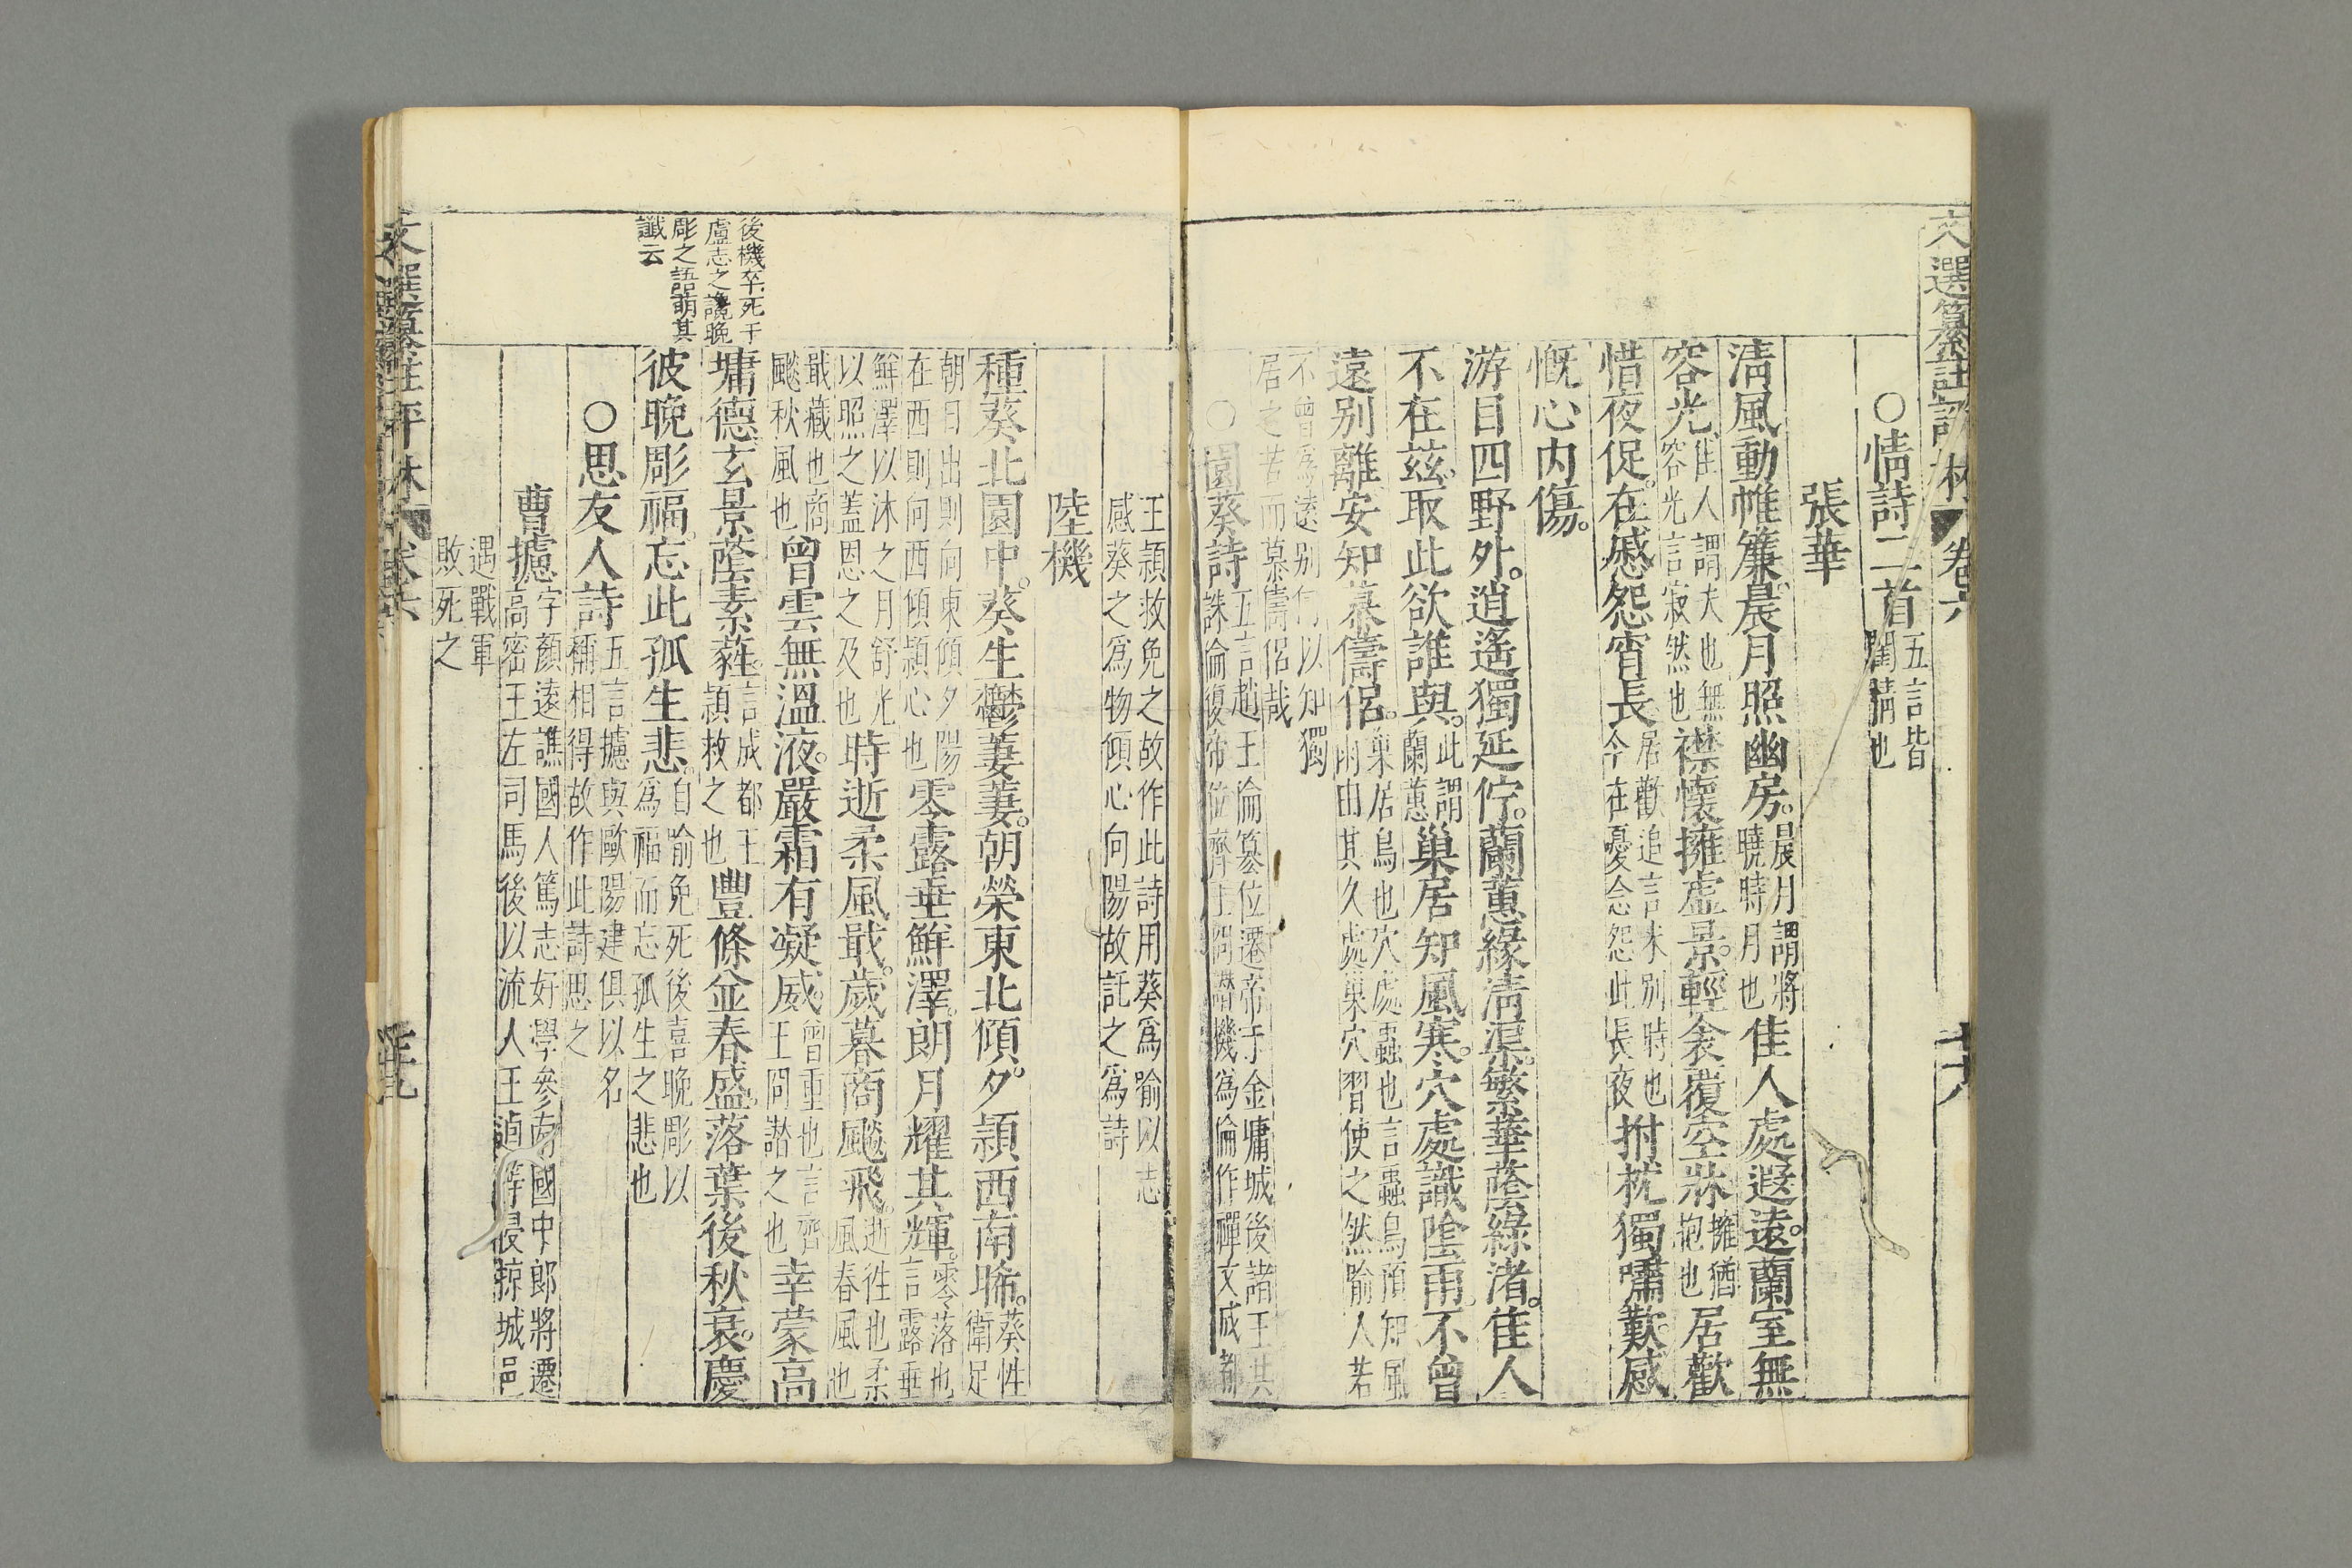 文選纂註評林 卷六
○情詩二首 五言皆閨情也
張華
清風動帷簾晨月照幽房 晨月謂將曉時月也 佳人處遐遠蘭室無
容光 佳人謂夫也無容光言寂然也 襟懷擁虛景輕衾覆空牀 擁猶抱也 居歡
惜夜促在慼怨宵長 居歡追言未別時也今在憂念怨此長夜 拊枕獨嘯歎感
慨心内傷
游目四野外逍遙獨延佇蘭蕙緣清渠繁華蔭綠渚佳人
不在茲取此欲誰與 此謂蘭蕙 巢居知風寒穴處識陰雨不曾
遠别離安知慕儔侶 巢居鳥也穴處蟲也言蟲鳥預知風雨由其久處巢穴習使之然喻人若
不曾爲遠别何以知獨居之苦而慕儔侶哉
○園葵詩 五言趙王倫篡位遷帝于金墉城後諸王共誅倫復帝位齊王冏譖機爲倫作禪文成都
王穎救免之故作此詩用葵爲喻以志感葵之爲物傾心向陽故託之爲詩
陸機
種葵北園中葵生鬱萋萋朝榮東北傾夕穎西南晞 葵性衛足
朝日出則向東傾夕陽在西則向西傾穎心也 零露垂鮮澤朗月耀其輝 零落也言露垂
鮮澤以沐之月舒光以照之蓋恩之及也 時逝柔風戢歲暮商飈飛 逝徃也柔風春風也
戢藏也商飈秋風也 曾雲無溫液嚴霜有凝威 曾重也言齊王冏譖之也 幸蒙高
墉德玄景蔭素蕤 言成都王穎救之也 豐條並春盛落葉後秋衰慶
彼晩彫福忘此孤生悲 自喻免死後喜晩彫以爲福而忘孤生之悲也
後機卒死于
盧志之讒晩
彫之語萌其
讖云
○思友人詩 五言攄與歐陽建俱以名稱相得故作此詩思之
曹攄 字顏遠譙國人篤志好學參南國中郎將遷高密王左司馬後以流人王逌等侵掠城邑
遇戰軍敗死之